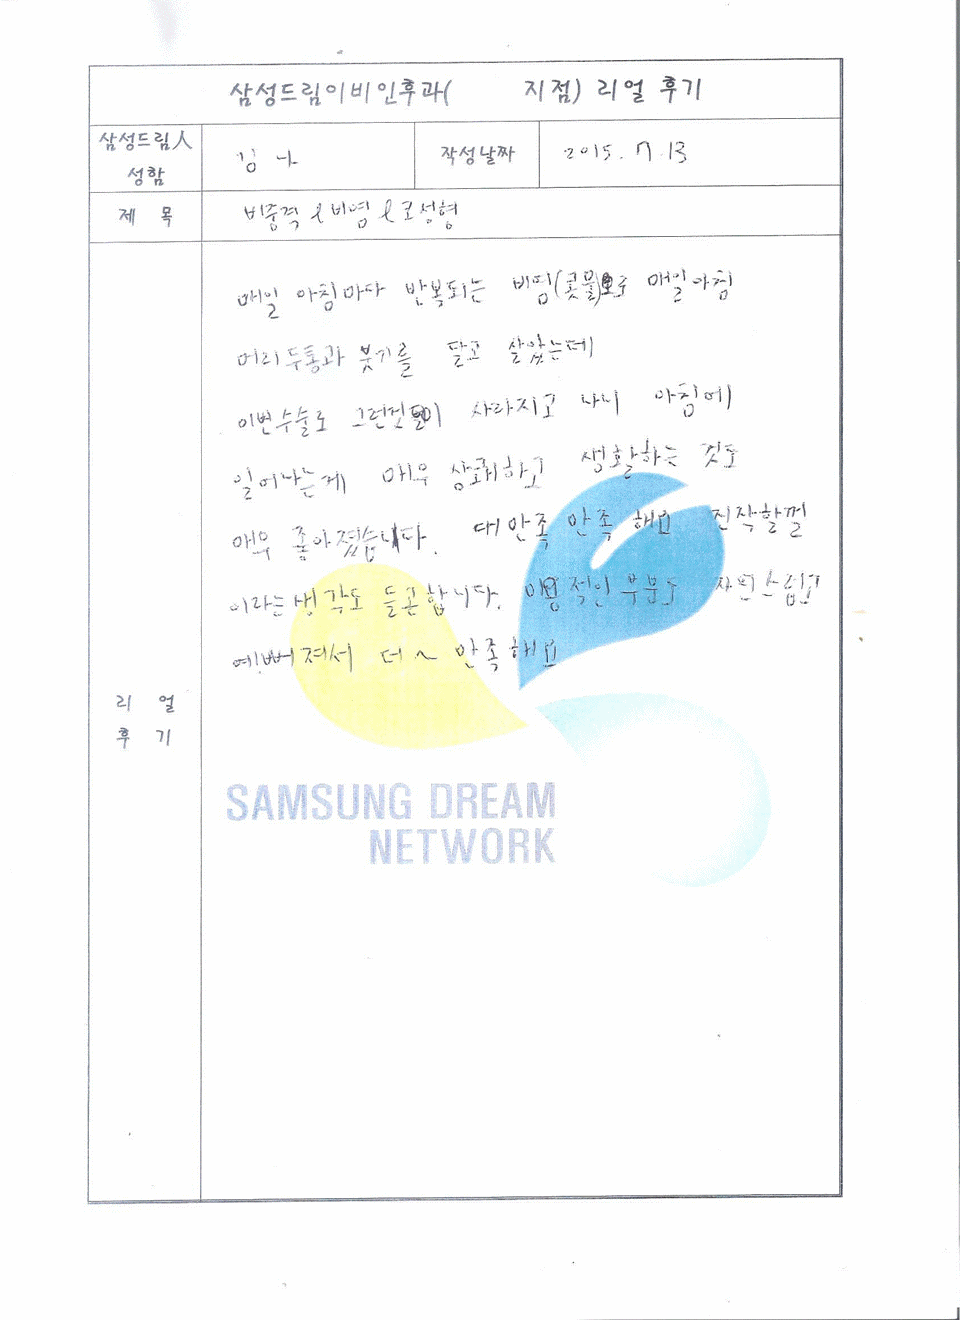 삼성드림이비인후과( 지점) 리얼 후기
삼성드림人
성함
김 나
작성날짜
2015. 7. 13
제 목
비중격 & 비염 & 코성형
매일 아침마다 반복되는 비염(콧물)으로 매일아침
머리두통과 붓기를 달고 살았는데
이번수술로 그런것들이 사라지고 나니 아침에
일어나는게 매우 상쾌하고 생활하는 것도
매우 좋아졌습니다. 대만족 만족 해요 진작할껄
이라는 생각도 들곤합니다. 미용적인 부분도 자연스럽고
예뻐져서 더~ 만족해요
리 얼
후 기
SAMSUNG DREAM
NETWORK